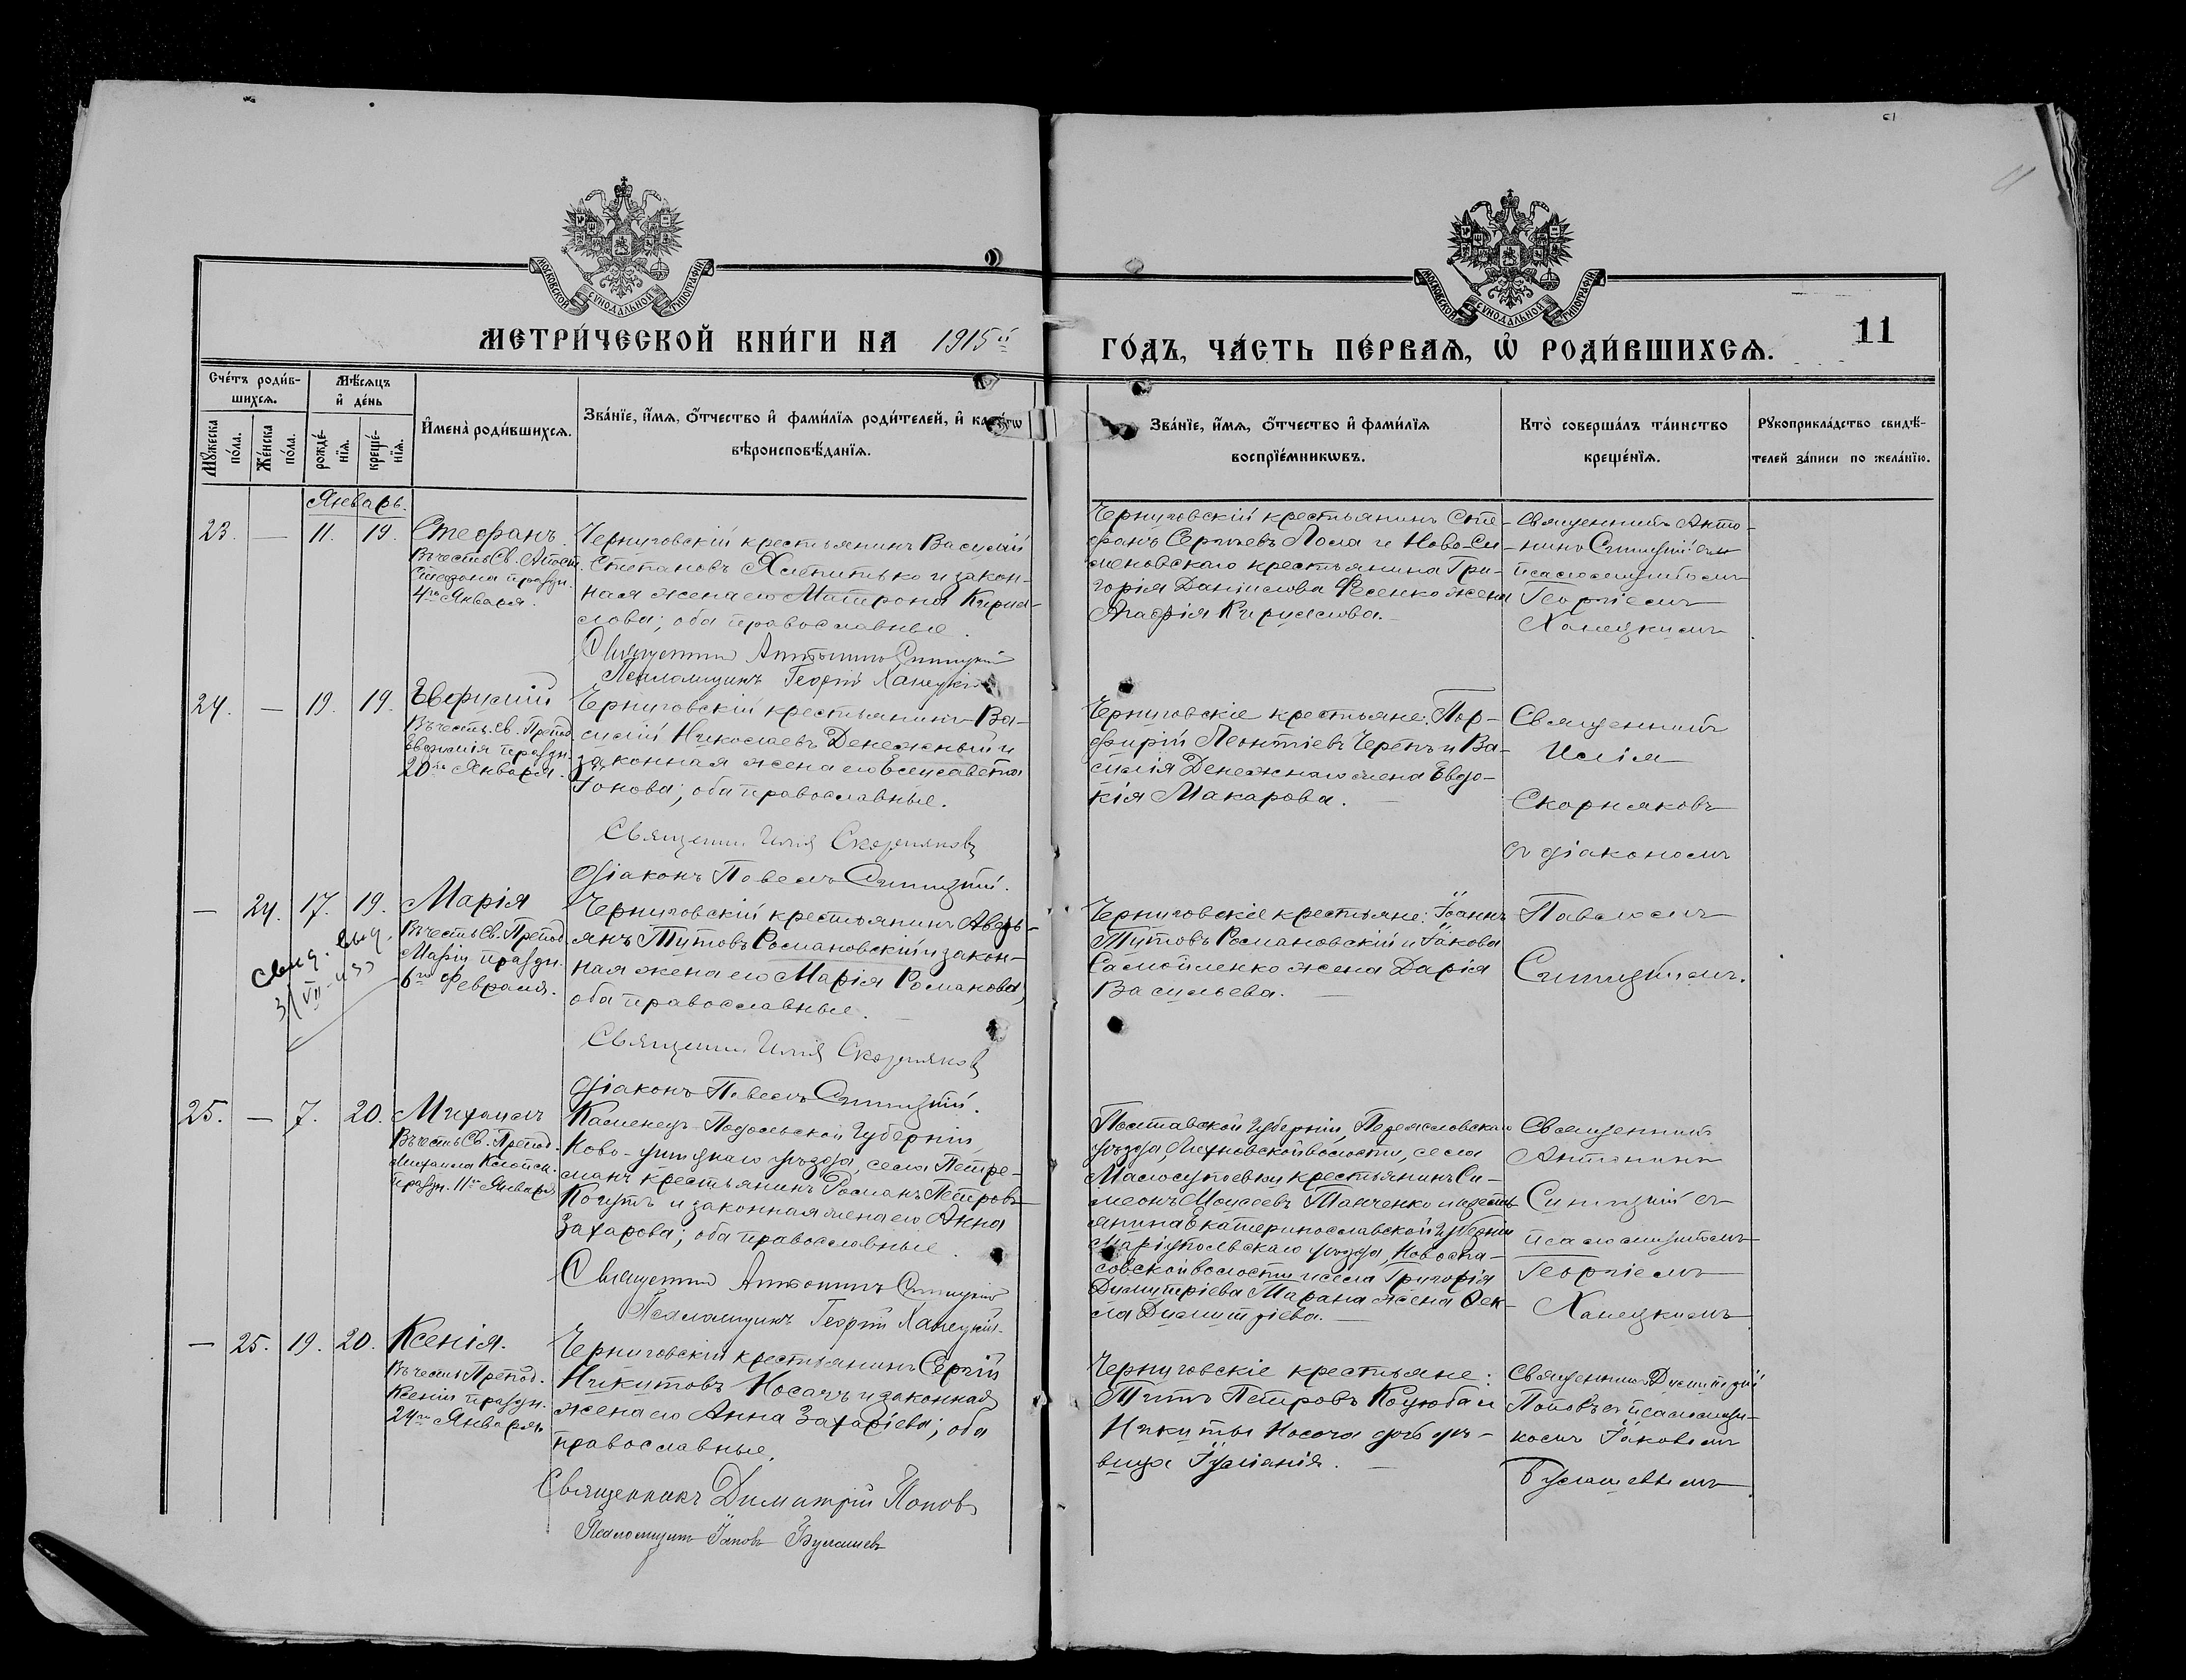 МОСКОВСКОЙ СУНОДАЛЬНОЙ ТИПОГРАФІИ
МОСКОВСКОЙ СУНОДАЛЬНОЙ ТИПОГРАФІИ
МЕТРИ́ЧЕСКОЙ КНИ́ГИ НА 1915й
ГО́ДЪ, ЧА́СТЬ ПЕ́РВАѦ, Ѡ҆ РОДИ́ВШИХСѦ.
11
Сче́тъ роди́в-
шихсѧ.
Мѣ́сѧцъ
и҆ де́нь
Мꙋ́жеска
по́ла.
Же́нска
по́ла.
рожде́-
нїѧ.
креще́-
нїѧ.
И҆мена̀ роди́вшихсѧ.
Зва́нїе, и҆́мѧ, ѻ҆́тчество и҆ фами́лїѧ роди́телей, и҆
вѣроисповѣ́данїѧ.
Зва́нїе, и҆́мѧ, ѻ҆́тчество и҆ фами́лїѧ
воспрїе́мникѡвъ.
Кто̀ соверша́лъ та́инство
креще́нїѧ.
Рꙋкоприкла́дство свидѣ́-
телей за́писи по жела́нїю.
Январь.
23. — 11. 19. Стефанъ.
Въ честь Св. Апост.
Стефана праздн.
4го Января.
Черниговскій крестьянинъ Василій
Степановъ Хлепитько и закон-
ная жена его Матрона Кирил-
лова; оба православные.
Священник Антонин Синицкій
Псаломщикъ Георгій Ханецкій
Черниговскій крестьянинъ Сте-
фанъ Сергіевъ Лола и Ново-Си-
меновскаго крестьянина Гри-
горія Даніилова Фесенко жена
Агафія Кириллова.
Священникъ Анто-
нинъ Синицкій съ
псаломщикомъ
Георгіемъ
Ханецкимъ
24. — 19. 19. Евфимій
Въ честь Св. Препод.
Евфимія праздн.
20го Января.
Черниговскій крестьянинъ Ва-
силій Николаевъ Денежный и
законная жена его Елисавета
Іонова; оба православные.
Священник Илія Скорняковъ
Діаконъ Павелъ Синицкій.
Черниговскіе крестьяне: Пор-
фирій Леонтіевъ Черепъ и Ва-
силія Денежнаго жена Евдо-
кія Макарова.
Священникъ
Илія
Скорняковъ
съ діакономъ
— 24. 17. 19. Марія
Въ честь Св. Препод.
Маріи праздн.
6го Февраля.
Свид. выд.
31/VII-
Черниговскій крестьянинъ Аверь-
янъ Титовъ Романовскій и закон-
ная жена его Марія Романова,
оба православные.
Священник Илія Скорняковъ
Діаконъ Павелъ Синицкій.
Черниговскіе крестьяне: Іоаннъ
Титовъ Романовскій и Іакова
Самойленко жена Дарія
Васильева.
Павломъ
Синицкимъ.
25. — 7. 20. Михаилъ
Въ честь Св. Препод.
Михаила Клопск.
праздн. 11го Января
Каменецъ-Подольской Губерніи,
Ново-Ушицкаго уѣзда, села Петри-
манъ крестьянинъ Романъ Петровъ
Когутъ и законная жена его Анна
Захарова; оба православные.
Священник Антонинъ Синицкій
Псаломщикъ Георгій Ханецкій.
Полтавской Губерніи, Переясловскаго
уѣзда, волости, села
крестьянинъ Си-
меонъ Моисеевъ Танченко и крестъ-
янина Екатеринославской губерніи
Маріупольскаго уѣзда, Новоспа-
совской волости и села Григорія
Димитріева Тарана жена Ѳек-
ла Димитріева.
Священникъ
Антонинъ
Синицкій съ
псаломщикомъ
Георгіемъ
Ханецкимъ
— 25. 19. 20. Ксенія.
Въ честь Препод.
Ксеніи праздн.
24го Января
Черниговскій крестьянинъ Сергій
Никитовъ Носачъ и законная
жена его Анна Захаріева; оба
православные.
Священникъ Димитрій Поповъ
Псаломщикъ Іаковъ Булашевъ
Черниговскіе крестьяне:
Титъ Петровъ Коцюба и
Никиты Носача дочь дѣ-
вица Іуліанія.
Священникъ Димитрій
Поповъ съ псаломщи-
комъ Іаковомъ
Булашевымъ